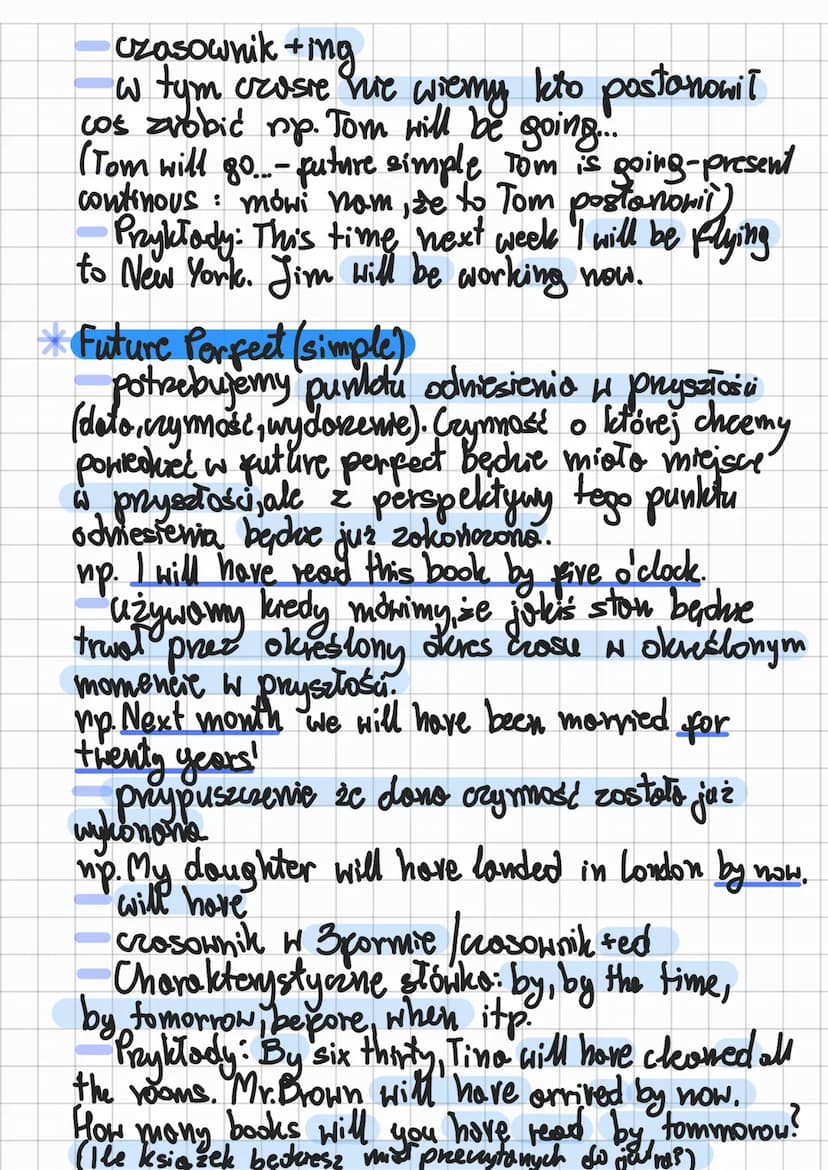 czasownik +ing
w tym czasie nie wiemy kto postanowił
coś zrobić np. Tom will be going...
(Tom will go...- future simple Tom is going-present
continous : mówi nam, że to Tom postanowił)
Przykłady: This time next week I will be flying
to New York. Jim will be working now.
* Future Perfect (simple)
potrzebujemy punktu odniesienia w przyszłości
(data, czynność, wydarzenie). Czynność o której chcemy
powiedzieć w future perfect będzie miała miejsce
w przyszłości, ale z perspektywy tego punktu
odniesienia będzie już zakończona.
np. I will have read this book by five o'clock.
używamy kiedy mówimy, że jakiś stan będzie
trwał przez określony okres czasu w określonym
momencie w przyszłości.
np. Next month we will have been married for
twenty years!
przypuszczenie że dana czynność została już
wykonana
np. My daughter will have landed in London by now.
will have
czasownik w 3 formie /czasownik +ed
Charakterystyczne słówka: by, by the time,
by tomorrow, before, when itp.
Przykłady: By six thirty, Tina will have cleaned all
the rooms. Mr. Brown will have arrived by now.
How many books will you have read by tommorow?
(Ile książek będziesz miał przeczytanych do jutra?)